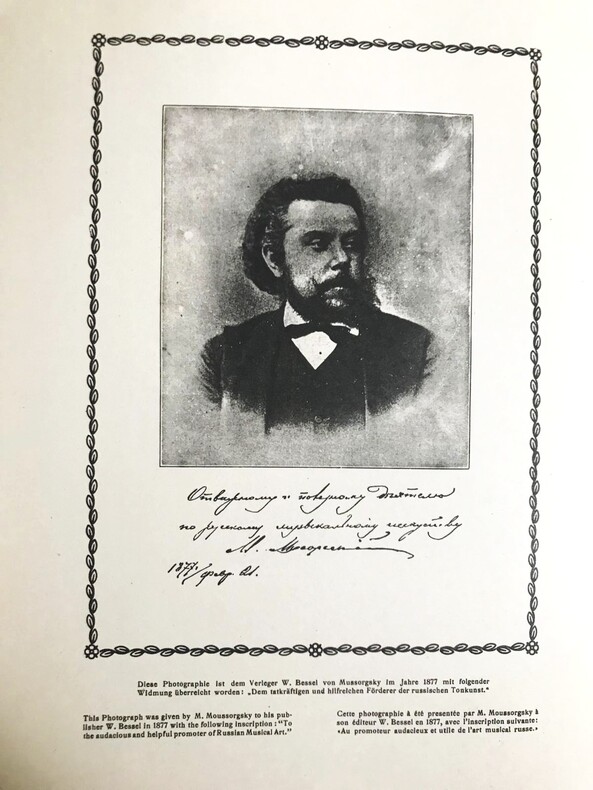 по русскому музыкальному искусству
1877/февр. 21.
Diese Photographie ist dem Verleger W. Bessel von Mussorgsky im Jahre 1877 mit folgender
Widmung überreicht worden: „Dem tatkräftigen und hilfreichen Förderer der russischen Tonkunst.“
This Photograph was given by M. Moussorgsky to his pub-
lisher W. Bessel in 1877 with the following inscription: "To
the audacious and helpful promoter of Russian Musical Art."
Cette photographie à été presentée par M. Moussorgsky à
son éditeur W. Bessel en 1877, avec l'inscription suivante:
«Au promoteur audacieux et utile de l'art musical russe.»